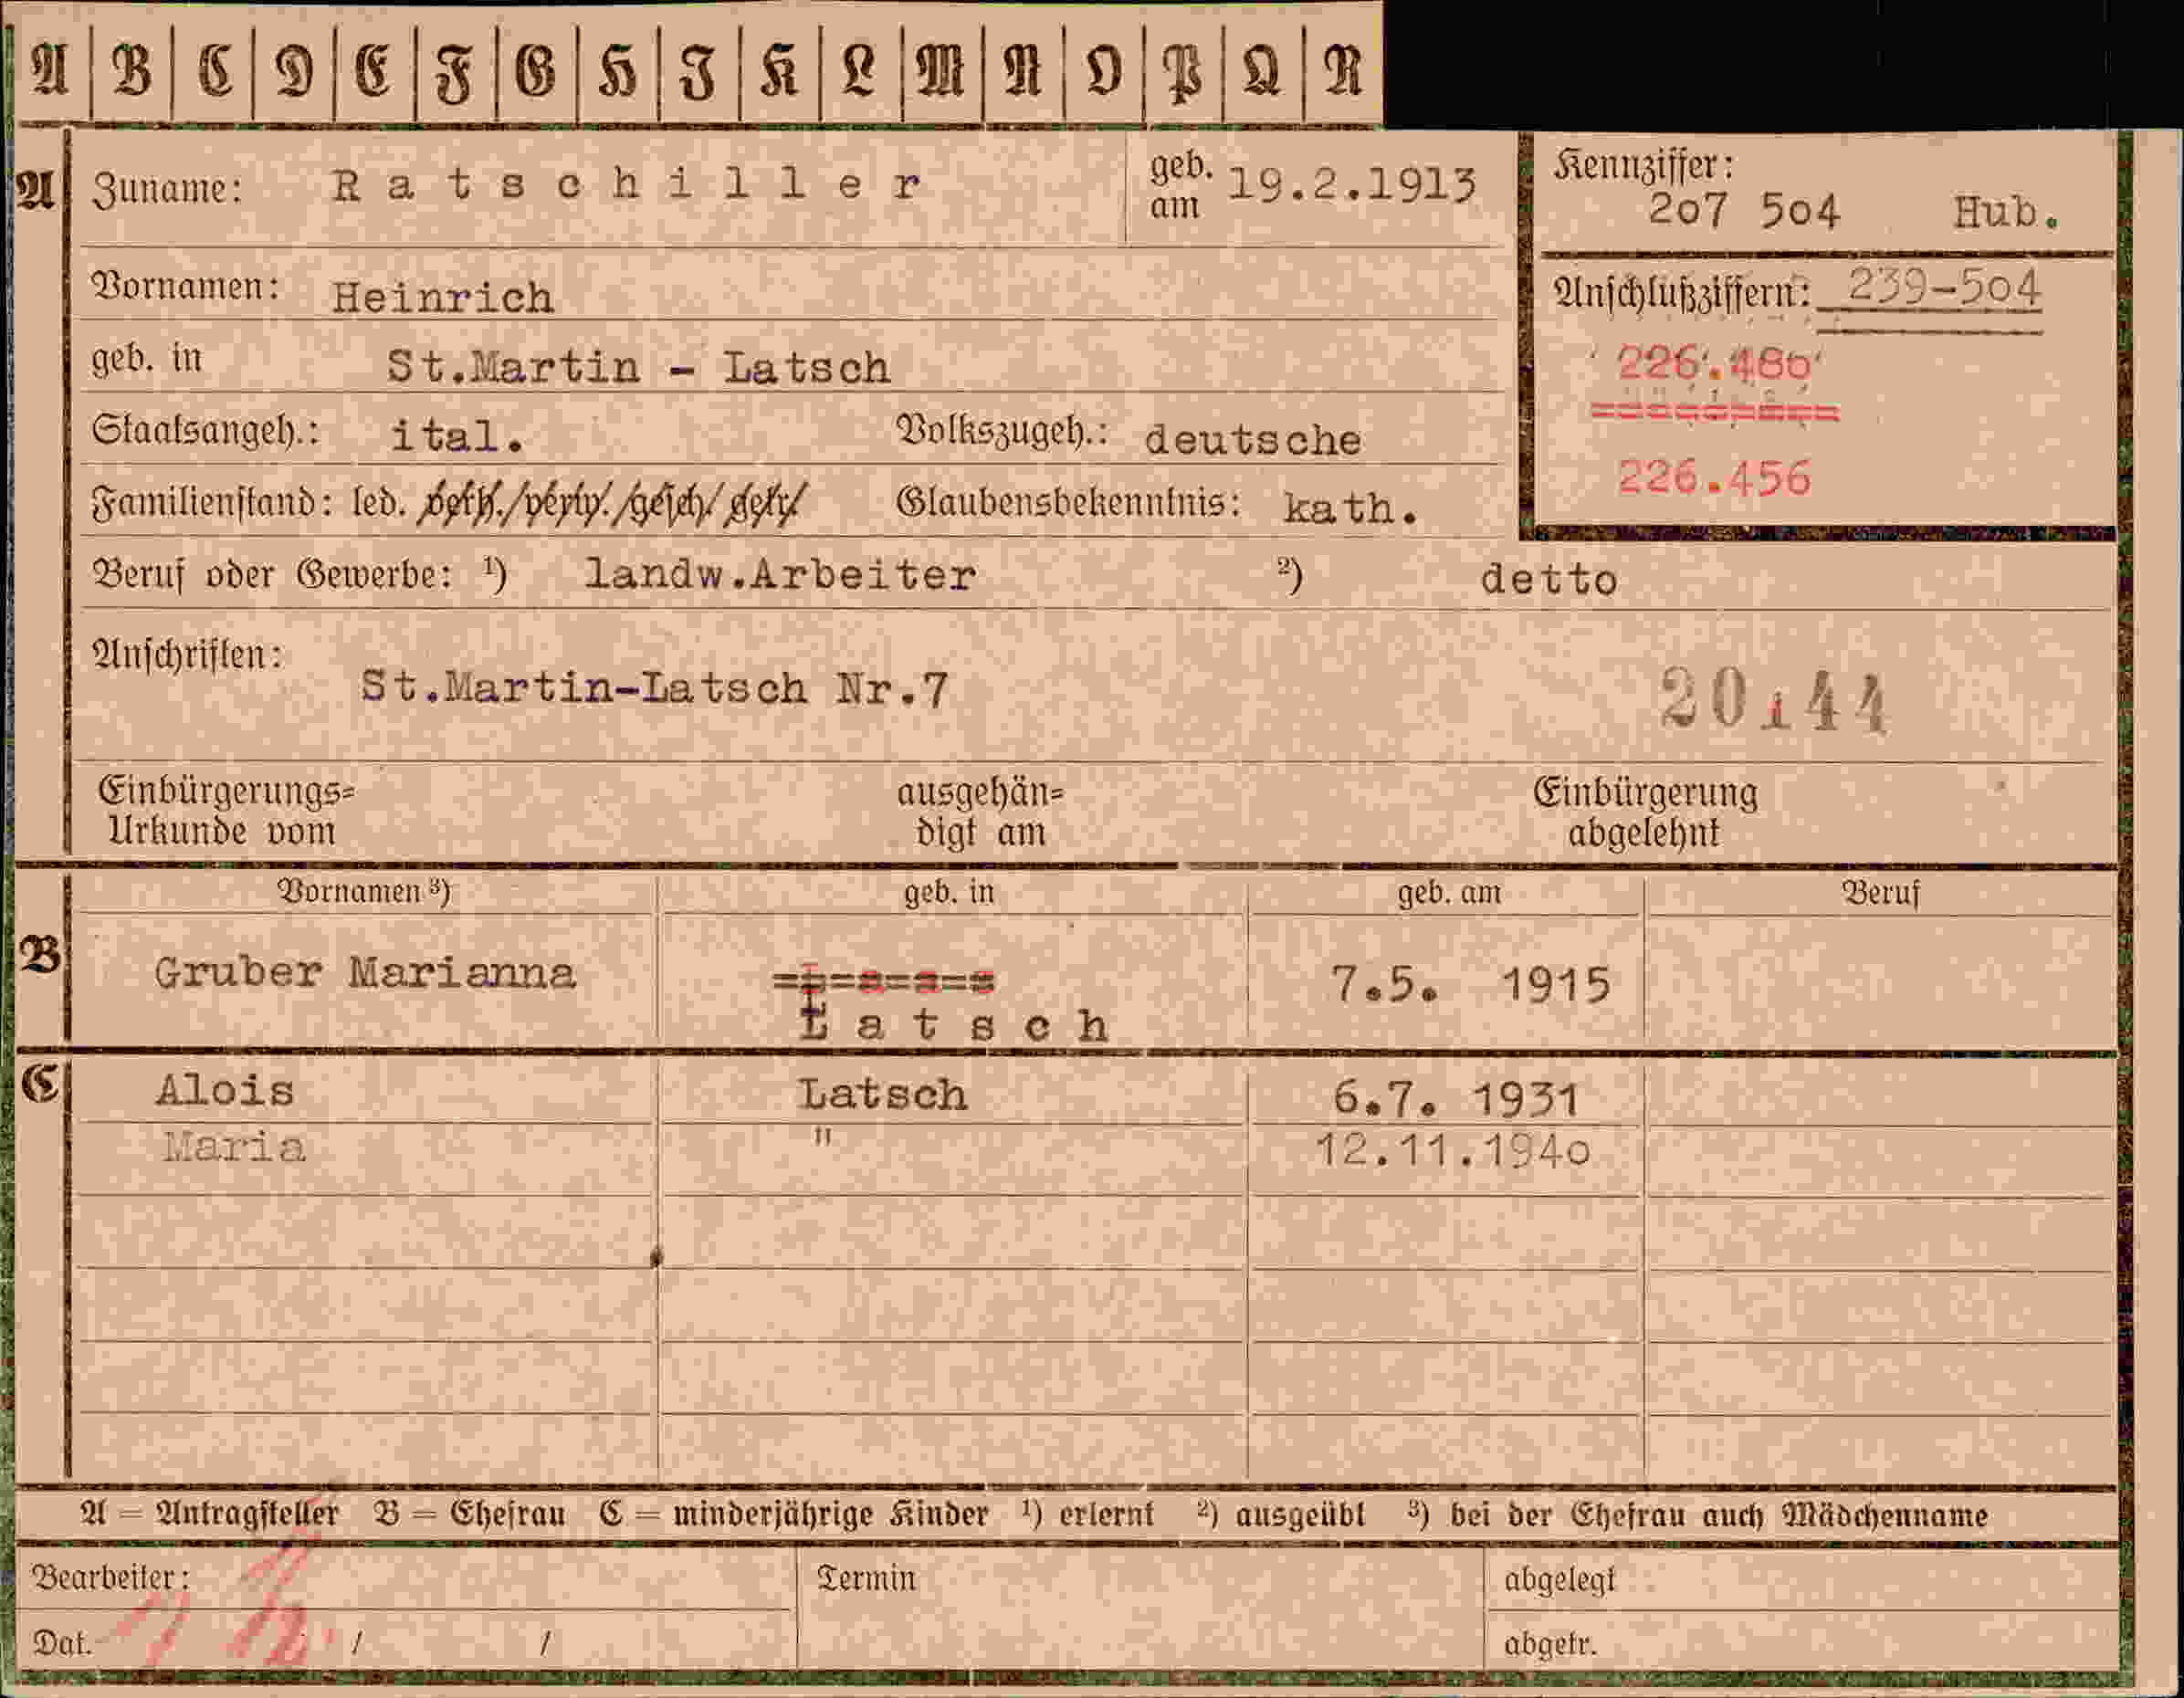 A B C D E F G H J K L M N O P Q R
A Zuname: Ratschiller geb. am 19.2.1913
Kennziffer:
207 504 Hub.
Vornamen: Heinrich
Anschlußziffern: 239-504
geb. in St.Martin - Latsch
226.480
=========
Staatsangeh.: ital. Volkszugeh.: deutsche
226.456
Familienstand: led. verh./verw./gesch/getr/ Glaubensbekenntnis: kath.
Beruf oder Gewerbe: ¹) landw.Arbeiter ²) detto
Anschriften:
St.Martin-Latsch Nr.7
20 1 44
Einbürgerungs=
Urkunde vom
ausgehän=
digt am
Einbürgerung
abgelehnt
Vornamen ³) geb. in geb. am Beruf
B Gruber Marianna Latsch 7.5. 1915
C Alois Latsch 6.7. 1931
Maria " 12.11.1940
A = Antragsteller B = Ehefrau C = minderjährige Kinder ¹) erlernt ²) ausgeübt ³) bei der Ehefrau auch Mädchenname
Bearbeiter: Termin abgelegt
Dat. / / abgetr.